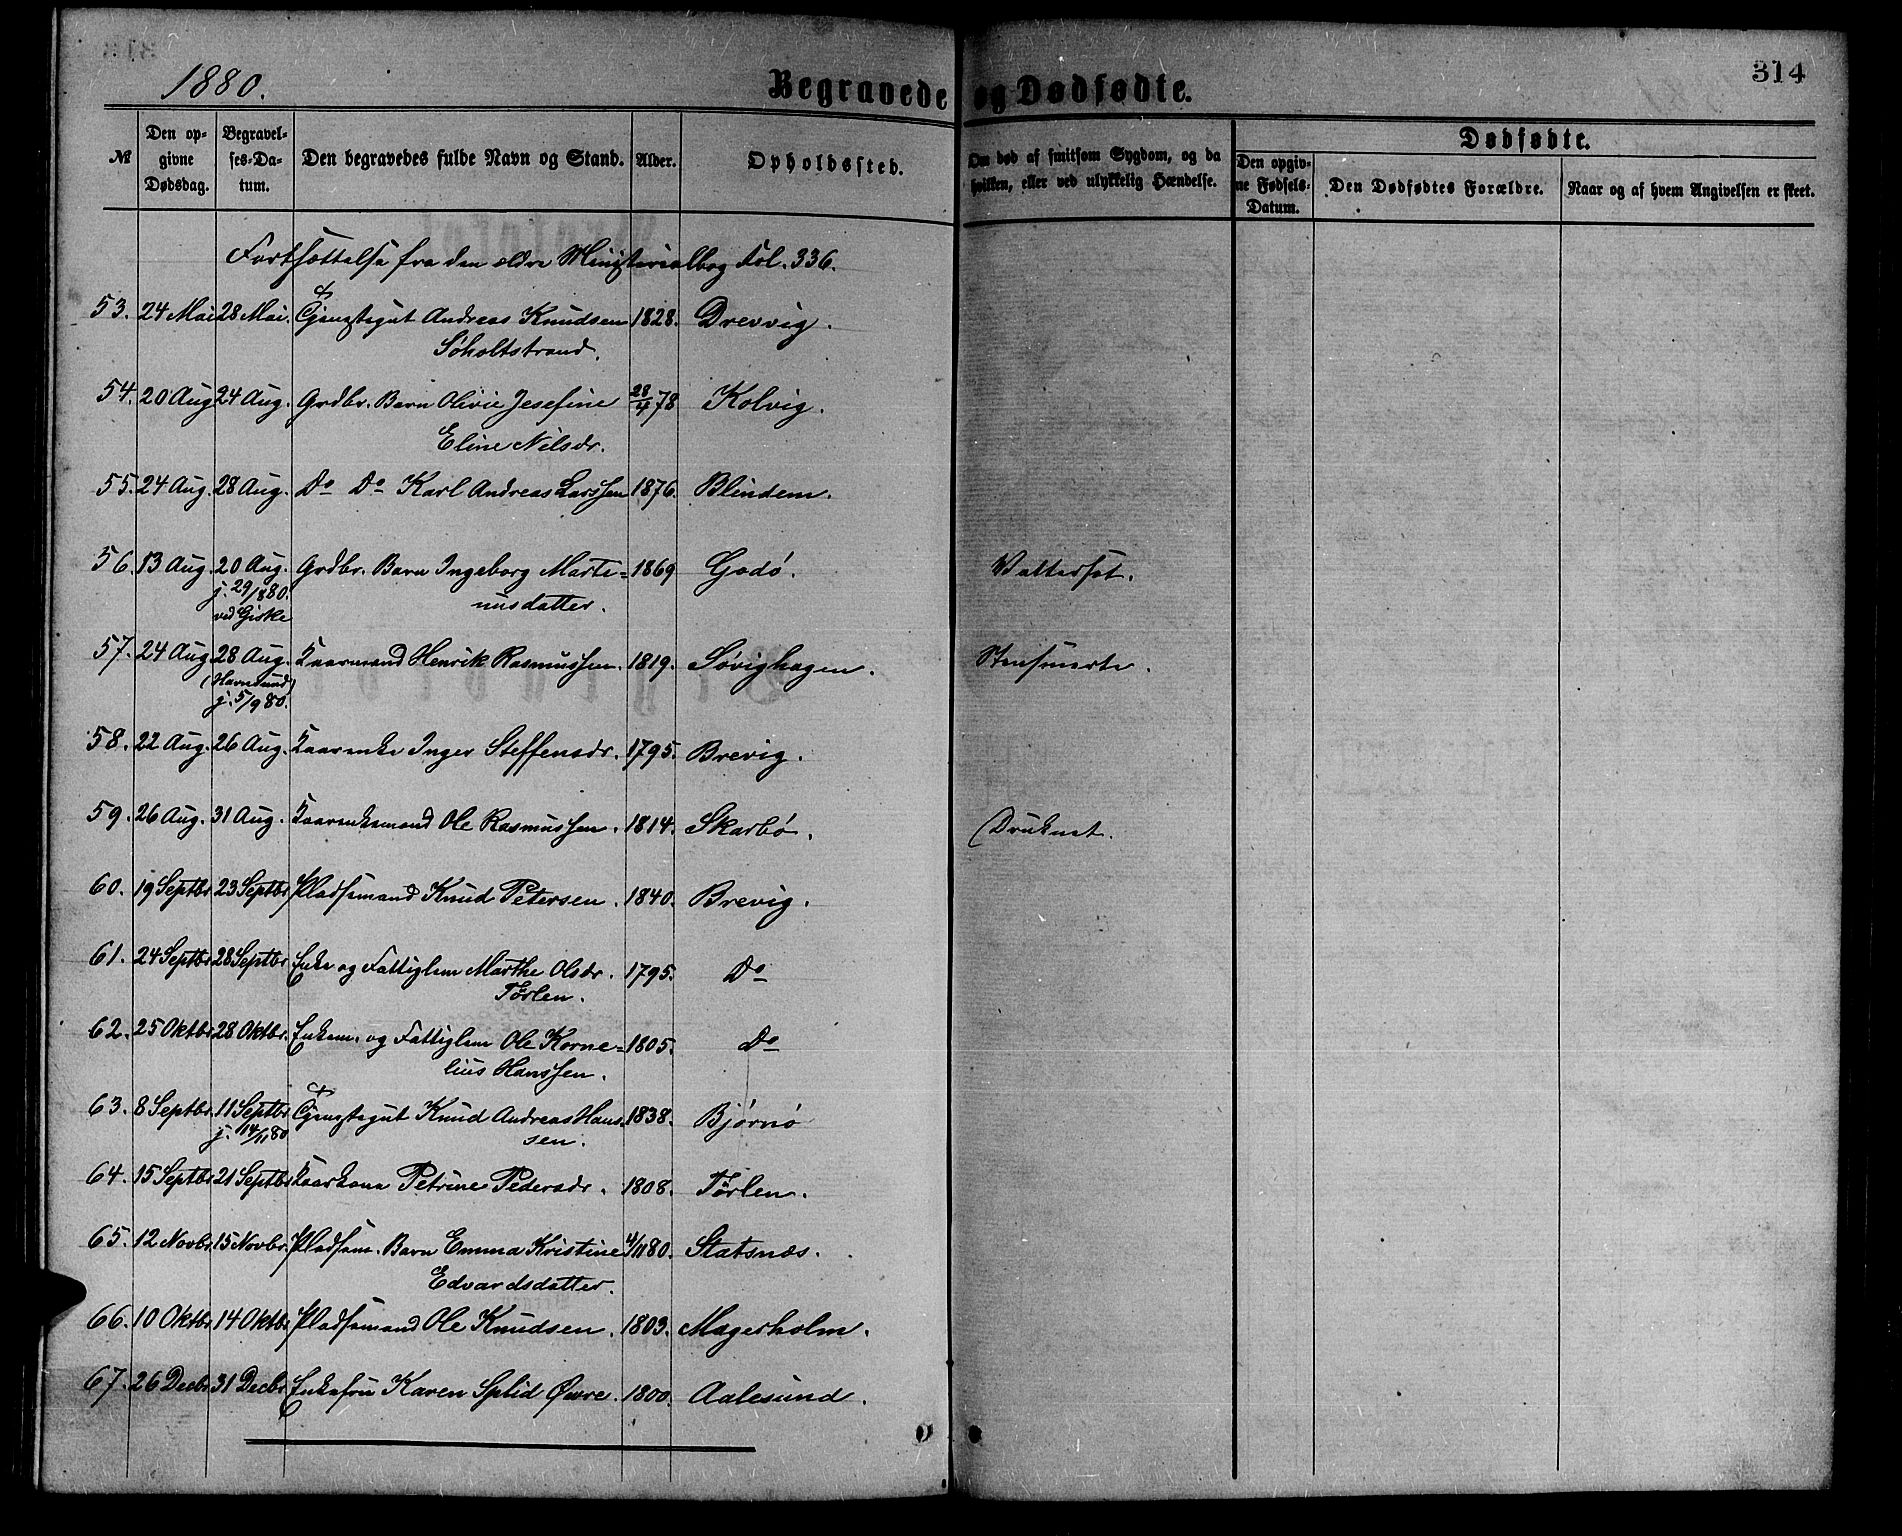 1880. Begravede og Dødfødte. 314
№ Den opgivne Dødsdag. Begravelses-Datum. Den begravedes fulde Navn og Stand. Alder. Opholdssted. Om død af smitsom Sygdom, og da hvilken, eller ved ulykkelig Hændelse. Dødfødte. Den opgivne Fødsels-Datum. Den Dødfødtes Forældre. Naar og af hvem Angivelsen er skeet.
Fortsættelse fra den ældre Ministerialbog Fol. 336.
53. 24 Mai 28 Mai. Tjenestegut Andreas Knudsen 1828. Drevvig.
Søholtstrand.
54. 20 Aug 24 Aug. Grdbr. Barn Olivie Josefine 28/4 78 Kolvig.
Eline Nilsdr.
55. 24 Aug. 28 Aug. Do Do Karl Andreas Larssen 1876. Blindem.
56. 13 Aug. 20 Aug. Grdbr. Barn Ingeborg Marte= 1869 Godø. Vattersot.
j. 29/8 80. nusdatter.
ved Giske
57. 24 Aug 28 Aug. Kaarmand Henrik Rasmussen. 1819. Søvighagen. Stensmerte.
(Havnsund)
j. 5/9 80.
58. 22 Aug. 26 Aug. Kaarenke Inger Steffensdr. 1795. Brevig.
59. 26 Aug. 31 Aug. Kaarenkemand Ole Rasmussen. 1814. Skarbø. Druknet.
60. 19 Septbr 23 Septbr Pladsemand Knud Petersen. 1840. Brevig.
61. 24 Septbr 28 Septbr Enke og Fattiglem Marthe Olsdr. 1795. Do
Tørlen.
62. 25 Oktbr 28 Oktbr. Enkem. og Fattiglem Ole Korne= 1805. Do
lius Hanssen.
63. 8 Septbr. 11 Septbr. Tjenestegut Knud Andreas Hans- 1838. Bjørnø
j. 14/11 80 sen.
64. 15 Septbr 21 Septbr Kaarkone Petrine Pedersdr. 1808. Tørlen.
65. 12 Novbr. 15 Novbr. Pladsem. Barn Emma Kristine 4/11 80. Statsnæs.
Edvardsdatter.
66. 10 Oktbr. 14 Oktbr Pladsemand Ole Knudsen. 1803. Magerholm.
67. 26 Decbr 31 Decbr. Enkefru Karen Splid Øwre. 1800. Aalesund.